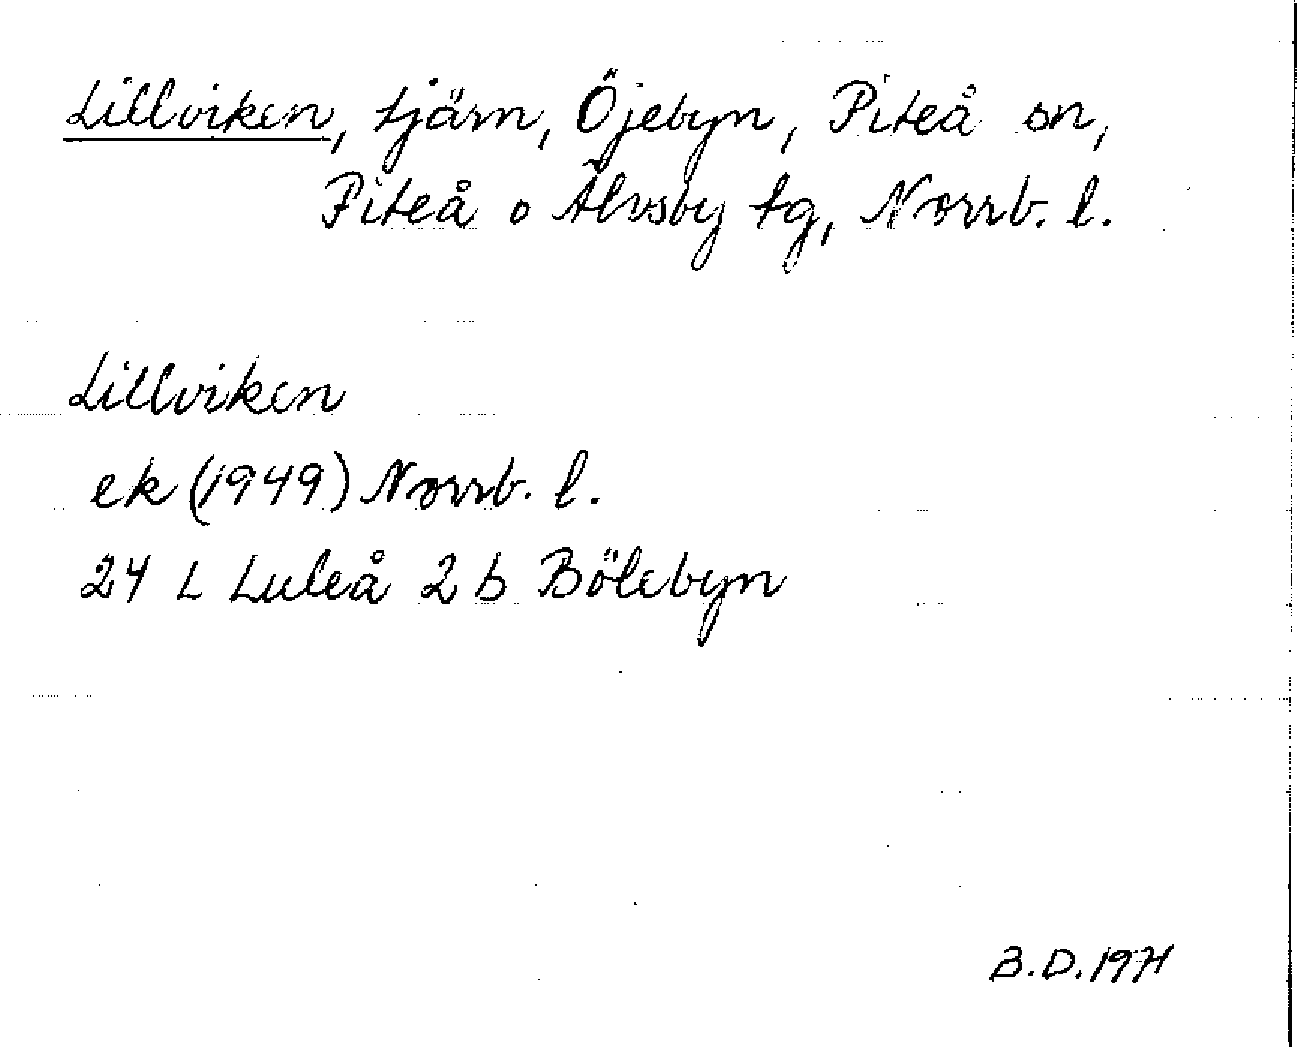 Lillviken, tjärn, Öjebyn, Piteå sn,
Piteå o Älvsby tg, Norrb. l.
Lillviken
ek (1949) Norrb. l.
24 L Luleå 2 b Bölebyn
B.D. 1971